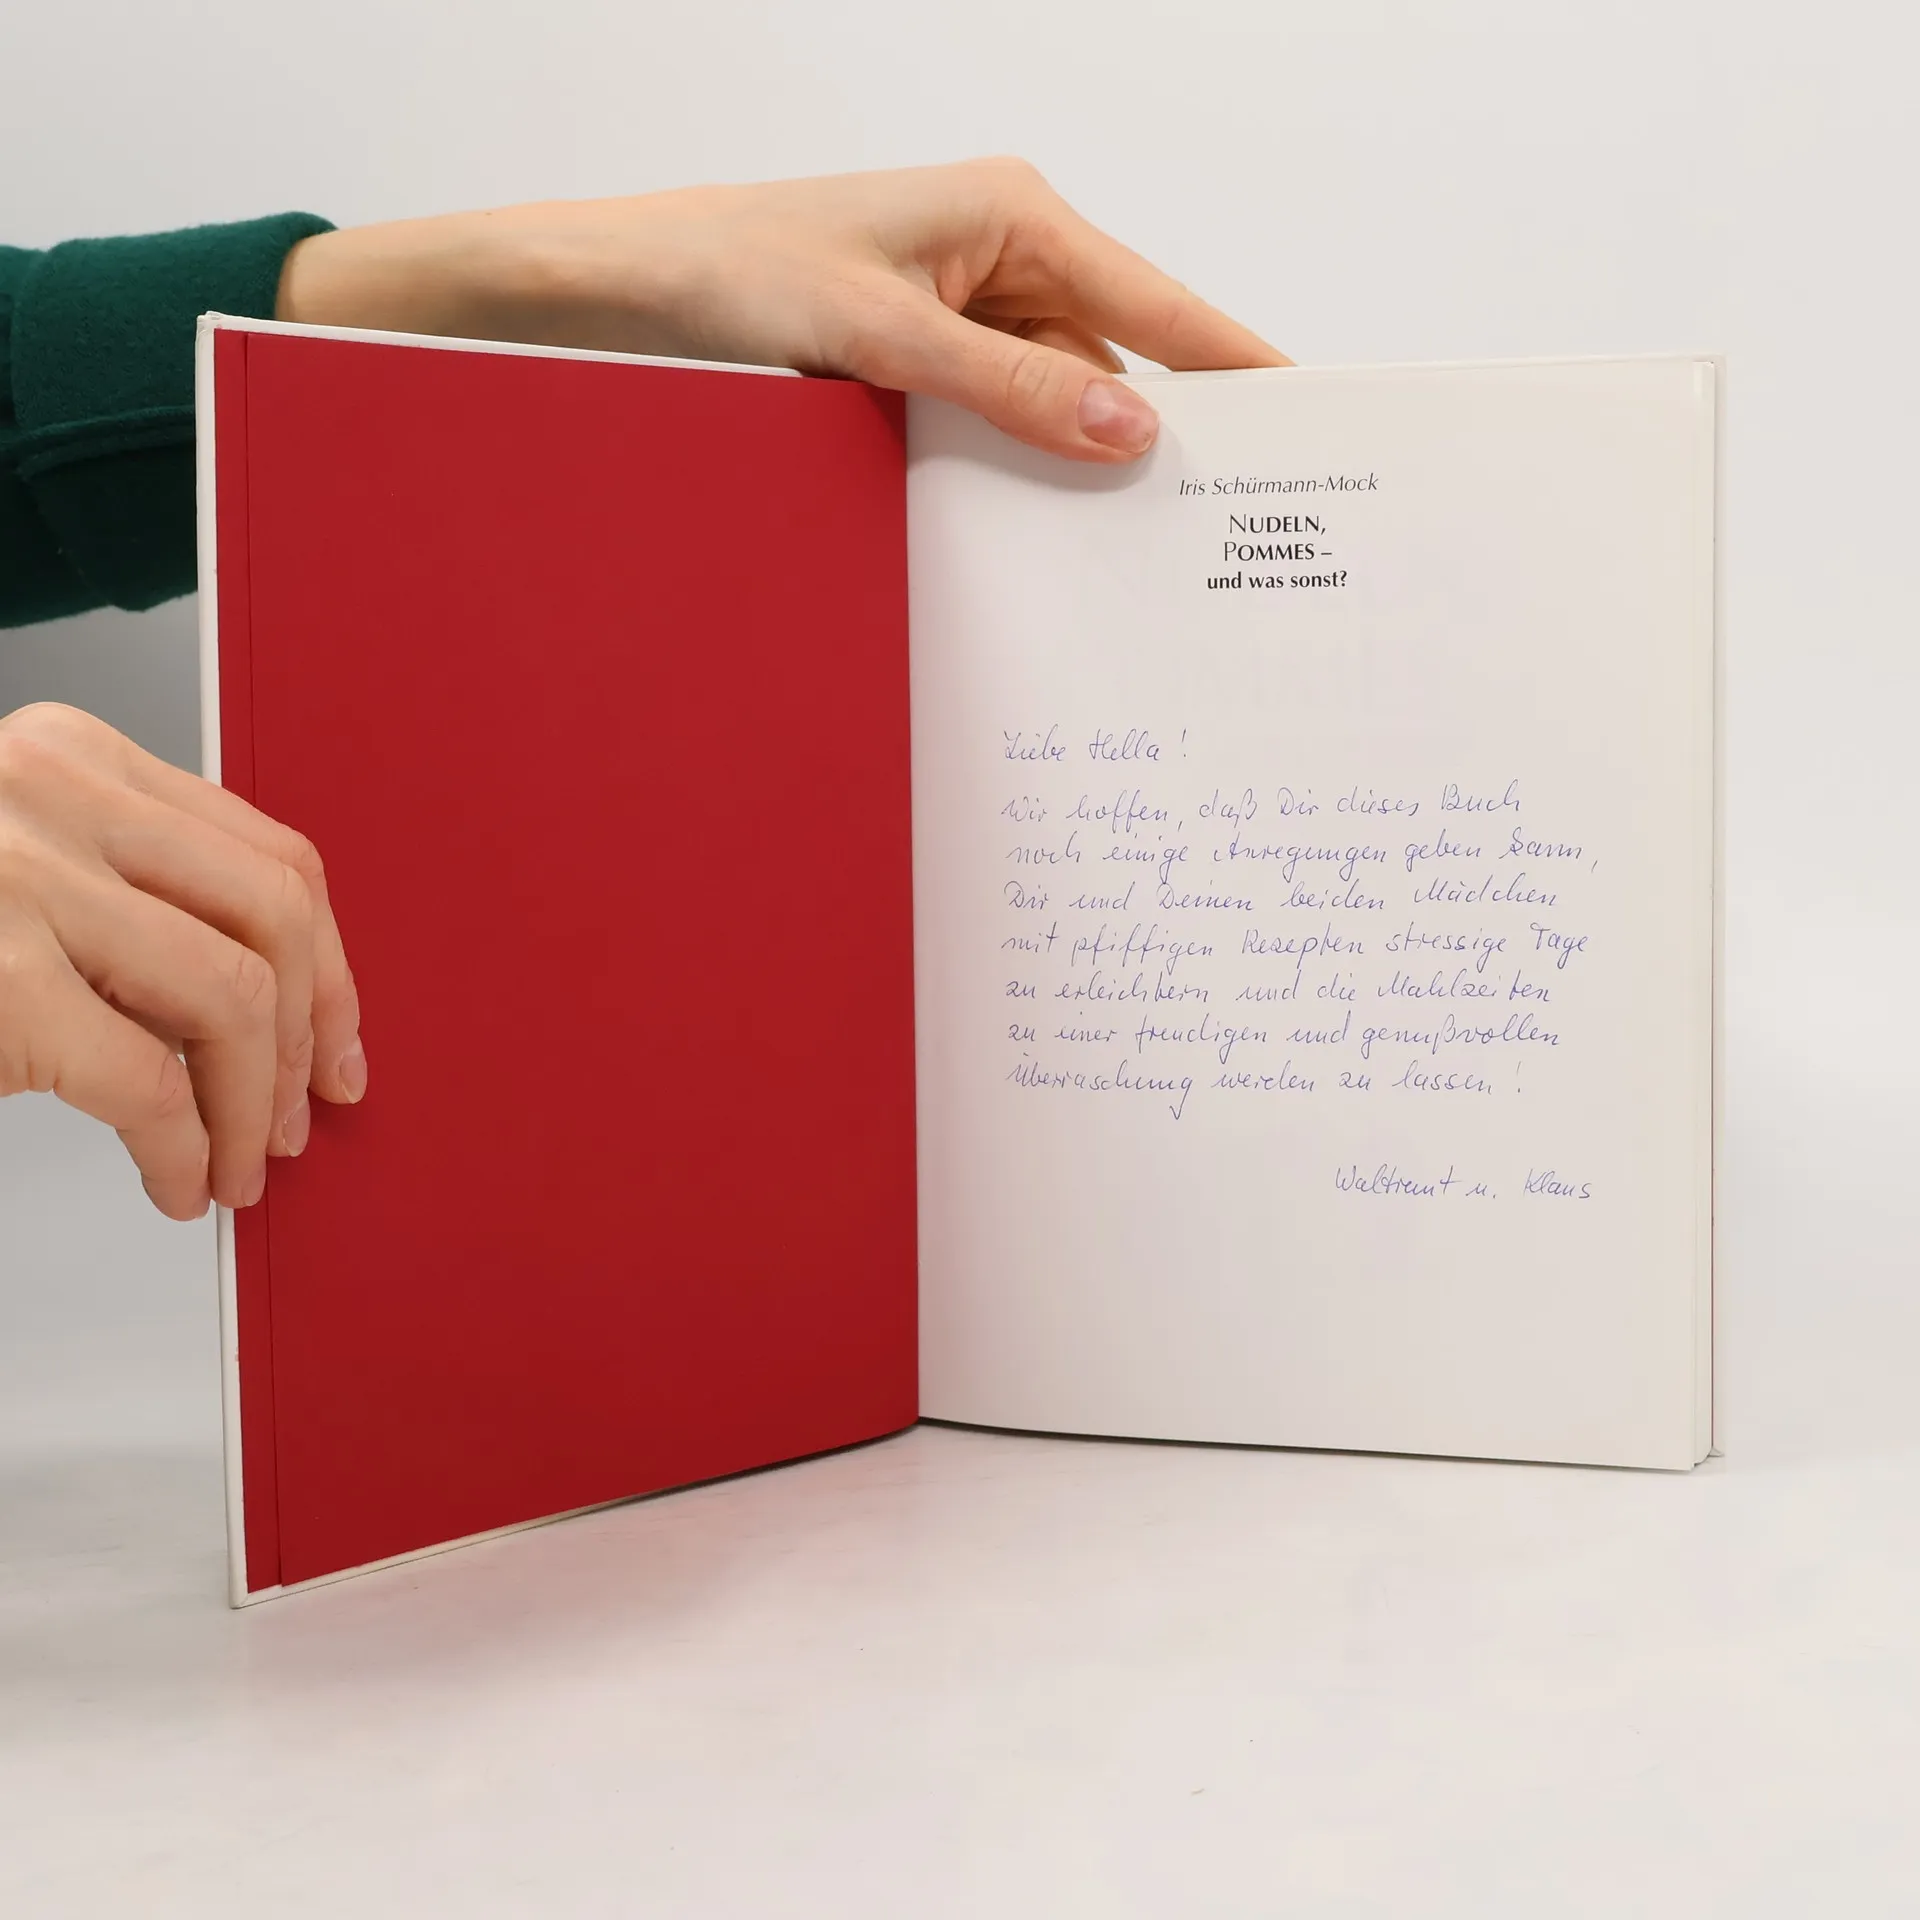 Iris Schürmann-Mock
NUDELN,
POMMES –
und was sonst?
Liebe Hella!
Wir hoffen, daß Dir dieses Buch
noch einige Anregungen geben kann,
Dir und Deinen beiden Mädchen
mit pfiffigen Rezepten stressige Tage
zu erleichtern und die Mahlzeiten
zu einer freudigen und genußvollen
Überraschung werden zu lassen!
Waltraut u. Klaus